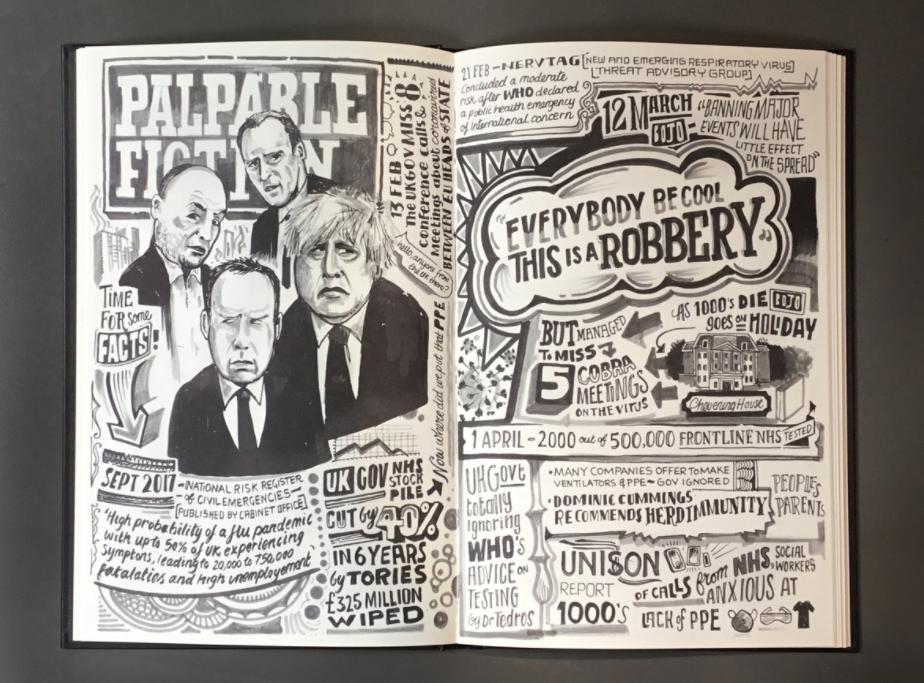 PALPABLE
FICTION
TIME
FOR some
FACTS!
13 FEB
The UK GOV MISS 8
conference calls &
Meetings about coronavirus
BETWEEN EU HEADS of STATE
hello, anyone from
the UK there?
Now where did we put that PPE
SEPT 2017 - NATIONAL RISK REGISTER
of CIVIL EMERGENCIES -
[PUBLISHED BY CABINET OFFICE]
"High probability of a flu pandemic
with up to 50% of UK experiencing
Symptons, leading to 20,000 to 750,000
fatalaties and high unemployement"
UK GOV NHS
STOCK
PILE
CUT by 40%
IN 6 YEARS
by TORIES
£325 MILLION
WIPED
21 FEB - NERVTAG [NEW AND EMERGING RESPIRATORY VIRUS]
[THREAT ADVISORY GROUP]
Concluded a moderate
risk after WHO declared
a public health emergency
of International concern
12 MARCH
BOJO
"BANNING MAJOR
EVENTS WILL HAVE
LITTLE EFFECT
ON THE SPREAD"
"EVERYBODY BE COOL
THIS IS A ROBBERY"
AS 1000's DIE BOJO
goes on HOLIDAY
BUT MANAGED
TO MISS
5 COBRA
MEETINGS
ON THE VIRUS
Chevening House
1 APRIL - 2000 out of 500,000 FRONTLINE NHS TESTED
UK Govt
totally
ignoring
WHO's
ADVICE ON
TESTING
by Dr Tedros
• MANY COMPANIES OFFER TO MAKE
VENTILATORS & PPE - GOV IGNORED
• DOMINIC CUMMINGS
RECOMMENDS HERD IMMUNITY
PEOPLE'S
PARENTS
UNISON
REPORT
1000's
OF CALLS from NHS SOCIAL
WORKERS
ANXIOUS AT
LACK of PPE